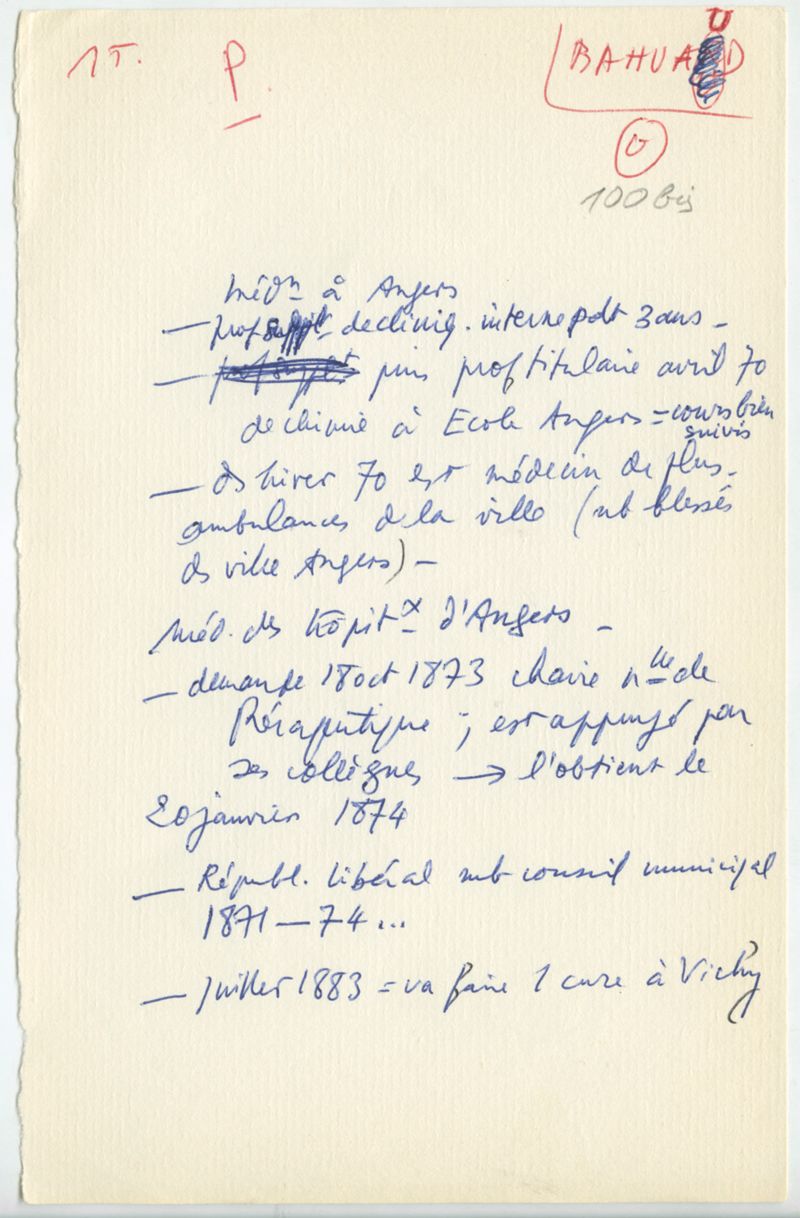 1T. P. BAHUAUD
U
100 bis
Médn à Angers
— prof suppl. de cliniq. interne pdt 3 ans –
— puis prof titulaire avril 70
de chimie à Ecole Angers = cours bien
suivis
— ds hiver 70 est médecin de plus.
ambulances de la ville (nb blessés
ds ville Angers) –
Méd. des hôpitx d'Angers –
— demande 18 oct 1873 chaire nlle de
thérapeutique ; est appuyé par
ses collègues → l'obtient le
20 janvier 1874
— Républ. libéral mb conseil municipal
1871 — 74...
— Juillet 1883 = va faire 1 cure à Vichy